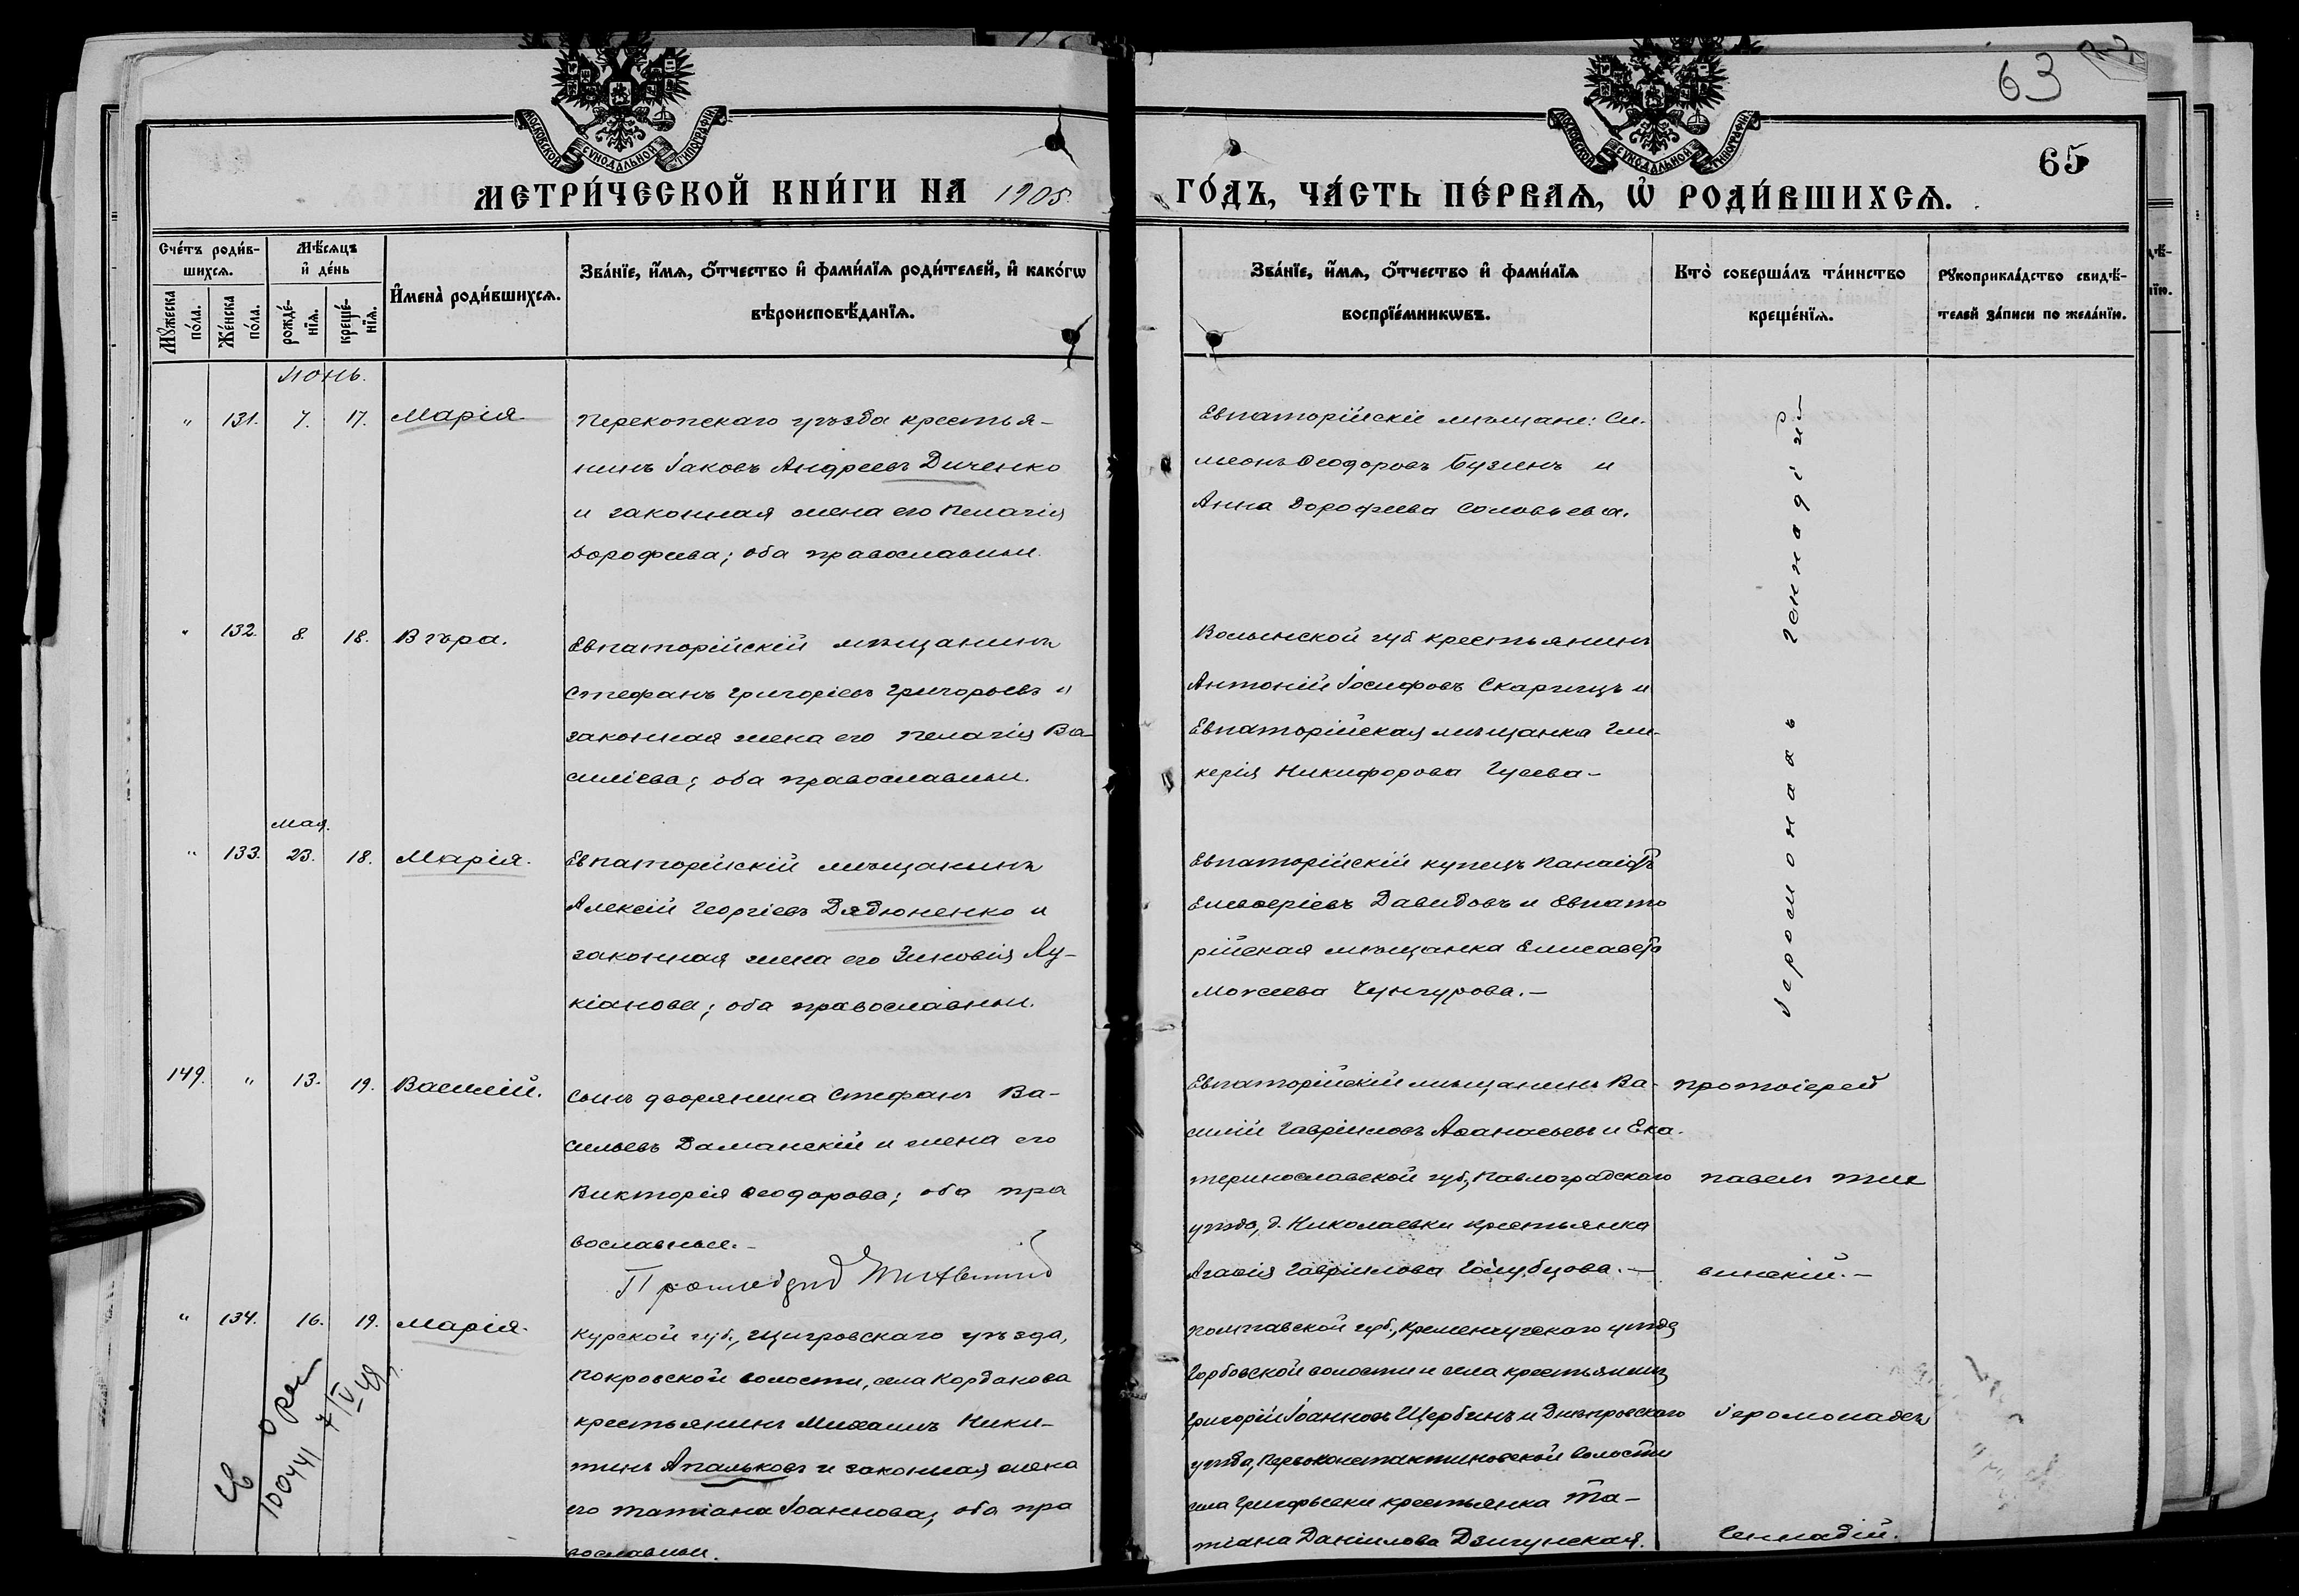 63
65
МОСКОВСКОЙ СѴНОДАЛЬНОЙ ТИПОГРАФІИ
МОСКОВСКОЙ СѴНОДАЛЬНОЙ ТИПОГРАФІИ
МЕТРИ́ЧЕСКОЙ КНИ́ГИ НА 1905
ГО́ДЪ, ЧА́СТЬ ПЕ́РВАѦ, Ѡ҆ РОДИ́ВШИХСѦ.
Сче́тъ роди́в-
шихсѧ.
Мꙋ́жеска по́ла.
Же́нска по́ла.
Мѣ́сѧцъ
и҆ де́нь
рожде́-
нїѧ.
креще́-
нїѧ.
И҆мена̀ роди́вшихсѧ.
Зва́нїе, и҆́мѧ, ѻ҆́тчество и҆ фами́лїѧ роди́телей, и҆ како́гѡ
вѣроисповѣ́данїѧ.
Зва́нїе, и҆́мѧ, ѻ҆́тчество и҆ фами́лїѧ
воспрїе́мникѡвъ.
Кто̀ соверша́лъ та́инство
креще́нїѧ.
Рꙋкоприкла́дство свидѣ́-
телей за́писи по жела́нїю.
Іюнь.
" 131. 7. 17. Марія.
Перекопскаго уѣзда крестья-
нинъ Іаковъ Андреевъ Диченко
и законная жена его Пелагія
Дорофеева; оба православные.
Евпаторійскіе мѣщане: Си-
меонъ Ѳеодоровъ Бузинъ и
Анна Дорофеева Соловьева.
Іеромонахъ Геннадій
" 132. 8. 18. Вѣра.
Евпаторійскій мѣщанинъ
Стефанъ Григоріевъ Григорьевъ и
законная жена его Пелагія Ва-
силіева; оба православные.
Волынской губ крестьянинъ
Антоній Іосифовъ и
Евпаторійская мѣщанка Гли-
керія Никифорова Гусева-
Мая.
" 133. 23. 18. Марія.
Евпаторійскій мѣщанинъ
Алексій Георгіевъ Дядюненко и
законная жена его Зиновія Лу-
кіанова; оба православные.
Евпаторійскій купецъ Панаіотъ
Елевѳеріевъ Давидовъ и Евпато
рійская мѣщанка Елисавета
Моисеева Чунгурова.-
149. " 13. 19. Василій.
Сынъ дворянина Стефанъ Ва-
сильевъ Даманскій и жена его
Викторія Ѳеодорова; оба пра
вославные.-
Евпаторійскій мѣщанинъ Ва-
силій Гавріиловъ Аѳанасьевъ и Ека-
теринославской губ., Павлоградскаго
уѣзда, д. Николаевки крестьянка
Агаѳія Гавріилова Голубцова.-
протоіерей
Павелъ Тих
винскій.-
" 134. 16. 19. Марія.
Курской губ., Щигровскаго уѣзда,
Покровской волости, села Корданова
крестьянинъ Михаилъ Ники-
тинъ Апальковъ и законная жена
его Татіана Іоаннова; оба пра
вославные.
Полтавской губ., Кременчугскаго уѣзда
Горбовской волости и села крестьянинъ
Григорій Іоанновъ Щербинъ и Днепровскаго
уѣзда, Первоконстантиновской волости
села Григорьевки крестьянка Та-
тіана Даніилова Дзигунская.
Іеромонахъ
Геннадій.
100441